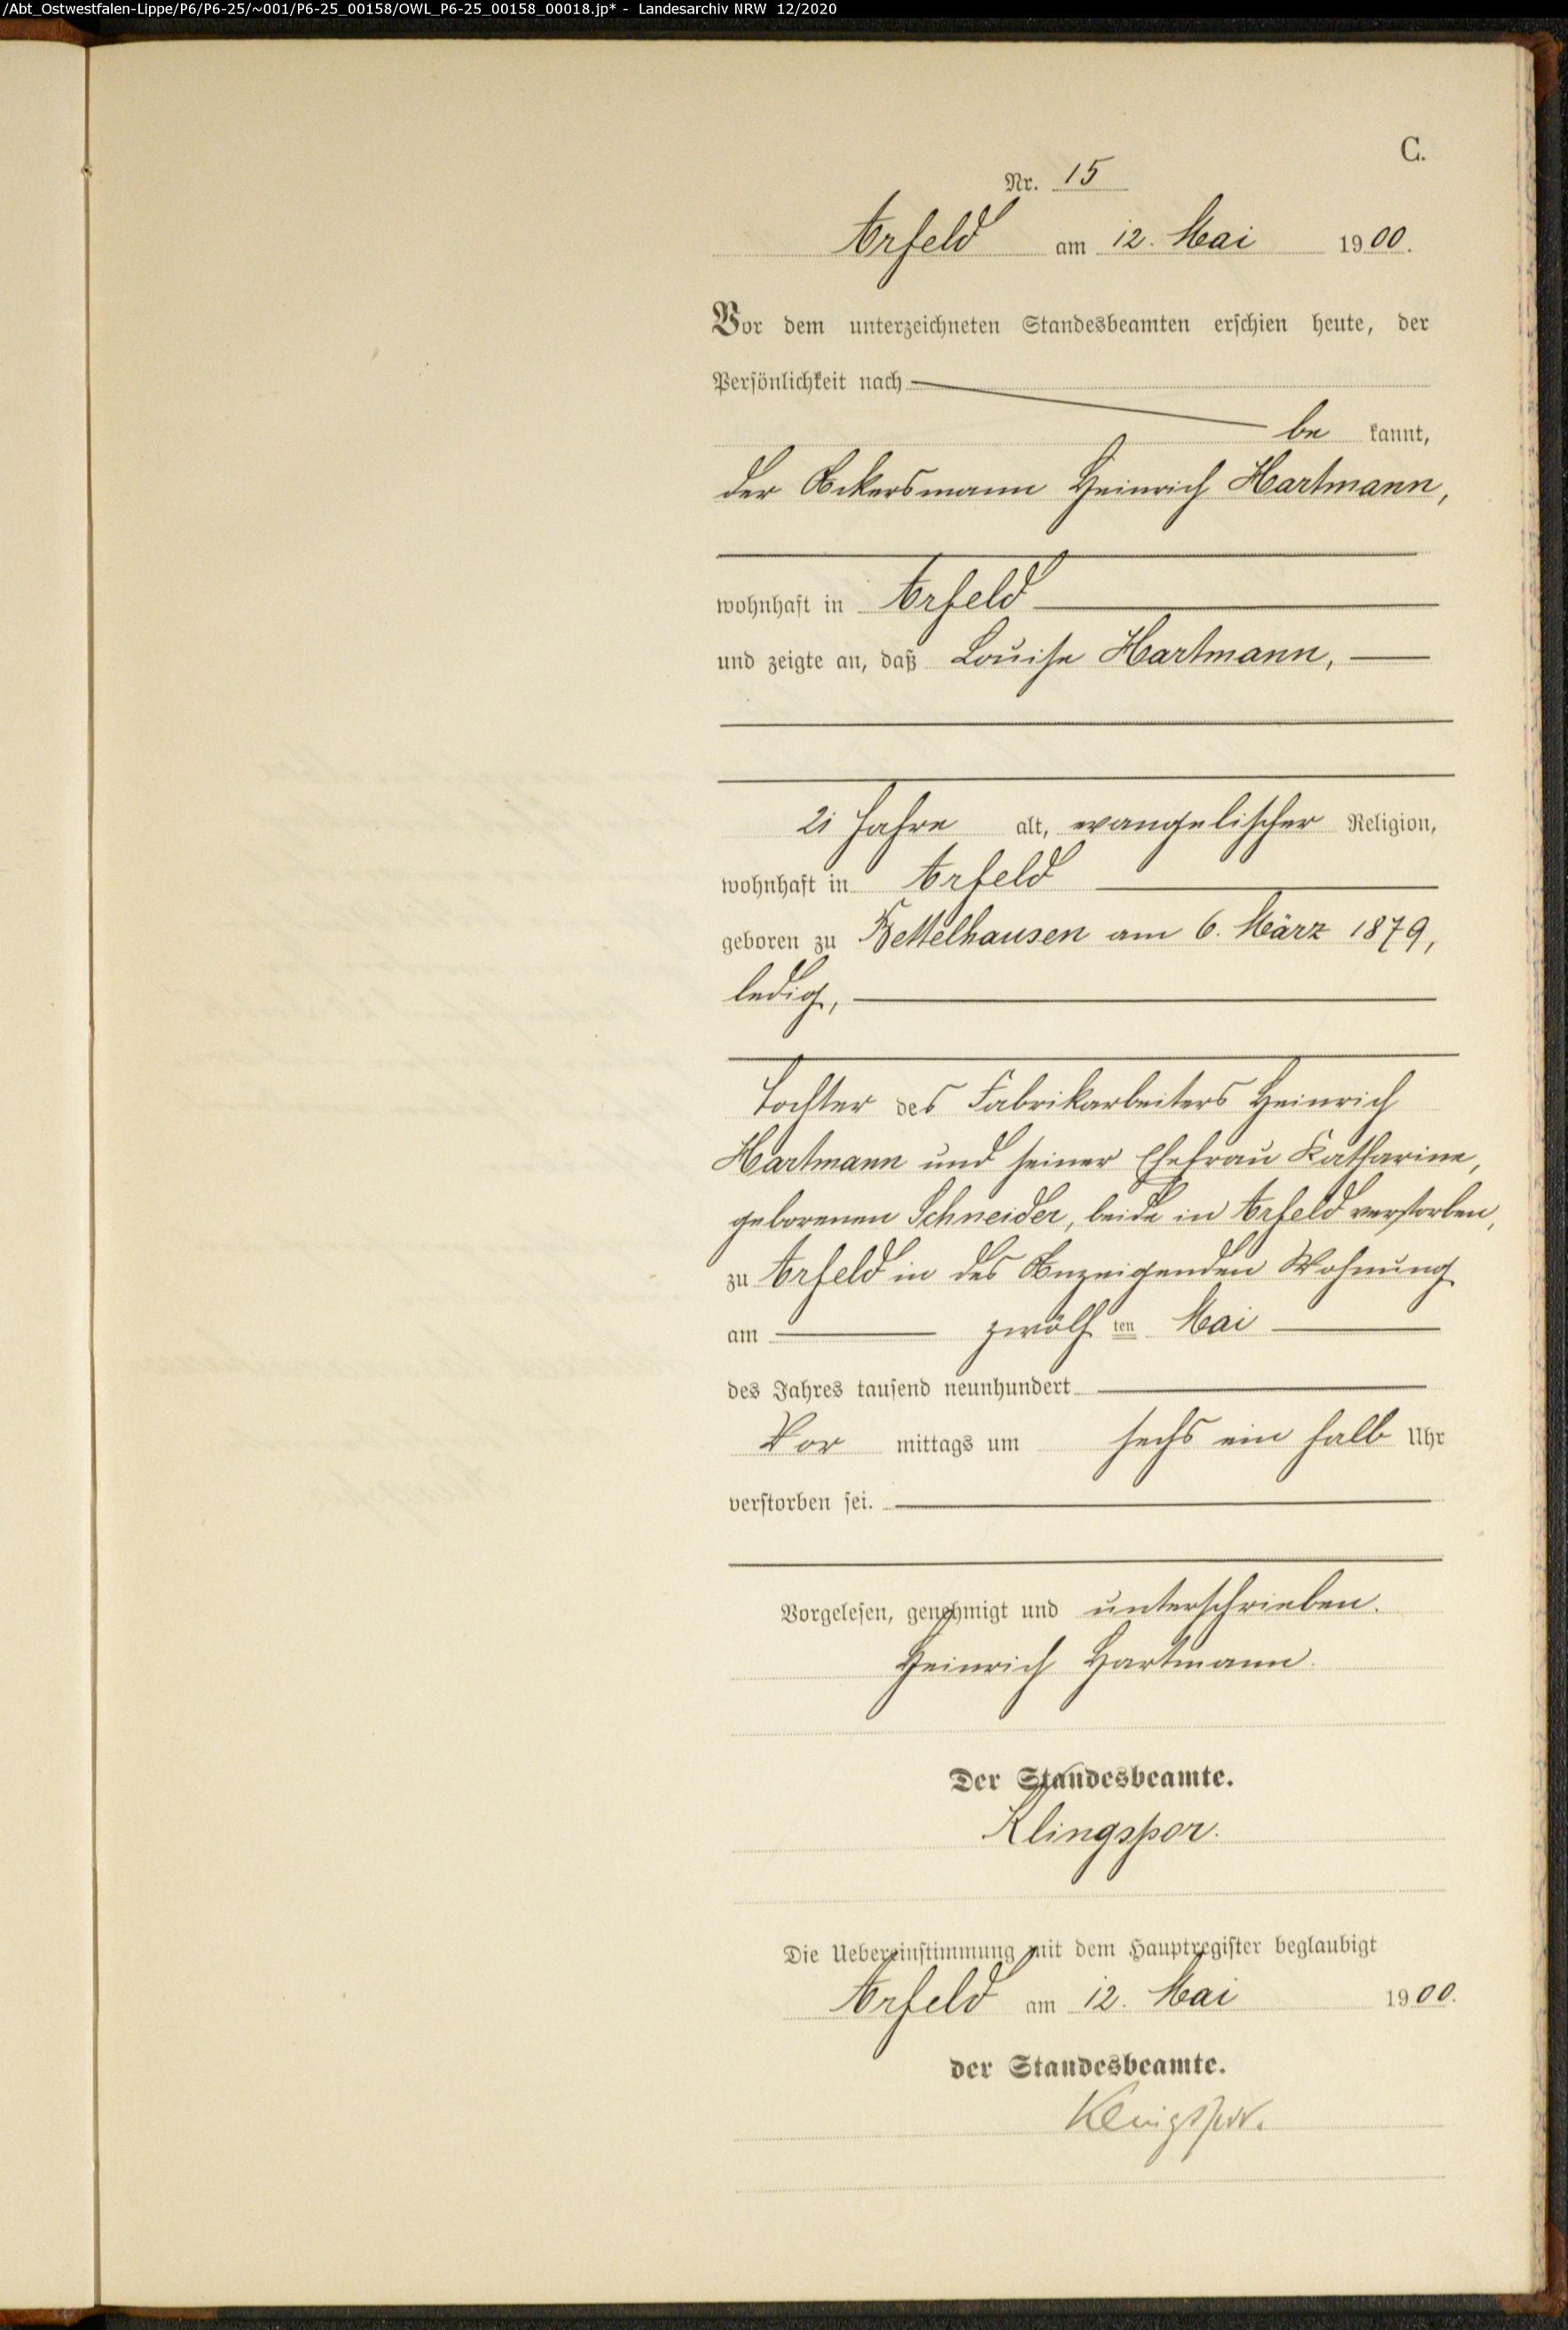 /Abt_Ostwestfalen-Lippe/P6/P6-25/~001/P6-25_00158/OWL_P6-25_00158_00018.jp* - Landesarchiv NRW 12/2020
C.
Nr. 15
Arfeld am 12. Mai 1900.
Vor dem unterzeichneten Standesbeamten erschien heute, der
Persönlichkeit nach
be kannt,
der Ackersmann Heinrich Hartmann,
wohnhaft in Arfeld
und zeigte an, daß Louise Hartmann,
21 Jahre alt, evangelischer Religion,
wohnhaft in Arfeld
geboren zu Bettelhausen am 6. März 1879,
ledig,
Tochter des Fabrikarbeiters Heinrich
Hartmann und seiner Ehefrau Katharine,
geborenen Schneider, beide in Arfeld verstorben,
zu Arfeld in des Anzeigenden Wohnung
am zwölf ten Mai
des Jahres tausend neunhundert
Vor mittags um sechs ein halb Uhr
verstorben sei.
Vorgelesen, genehmigt und unterschrieben.
Heinrich Hartmann.
Der Standesbeamte.
Klingspor.
Die Uebereinstimmung mit dem Hauptregister beglaubigt
Arfeld am 12. Mai 1900.
der Standesbeamte.
Klingspor.